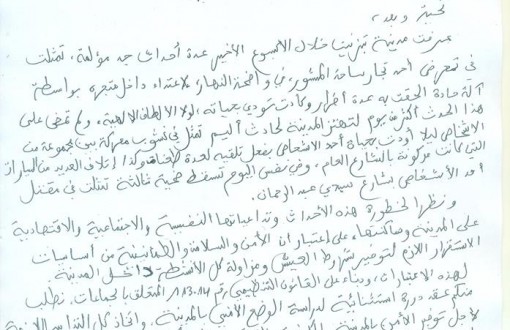 تحية وبعد،
عرفت مدينة تيزنيت خلال الأسبوع الأخير عدة أحداث جد مؤلمة، تمثلت
في تعرض أحد تجار ساحة المشور، في واضحة النهار لاعتداء داخل متجره بواسطة
آلة حادة ألحقت به عدة أضرار وكادت تودي بحياته، لولا الألطاف الإلهية، ولم تمضي على
هذا الحدث أكثر من يوم لتهتز المدينة لحادث أليم تمثل في نشوب معركة بين مجموعة من
الأشخاص ليلا أودت بحياة أحد الأشخاص بفعل تلقيه لعدة طعنات وكذا إتلاف العديد من السيارات
التي كانت مركونة بالشارع العام، وفي نفس اليوم تسقط ضحية ثالثة تمثلت في مقتل
أحد الأشخاص بشارع سيدي عبد الرحمان.
ونظرا لخطورة هذه الأحداث وتداعياتها النفسية والاجتماعية والاقتصادية
على المدينة وساكنتها، على اعتبار أن الأمن والسلامة والطمأنينة من أساسيات
الاستقرار اللازم لتوفير شروط العيش ومزاولة كل الأنشطة داخل المدينة
لهذه الاعتبارات، وبناء على القانون التنظيمي رقم 113.14 المتعلق بالجماعات، نطلب
منكم عقد دورة استثنائية لدراسة الوضع الأمني بالمدينة، واتخاذ كل التدابير اللازمة
لأجل توفير الأمن بالمدينة